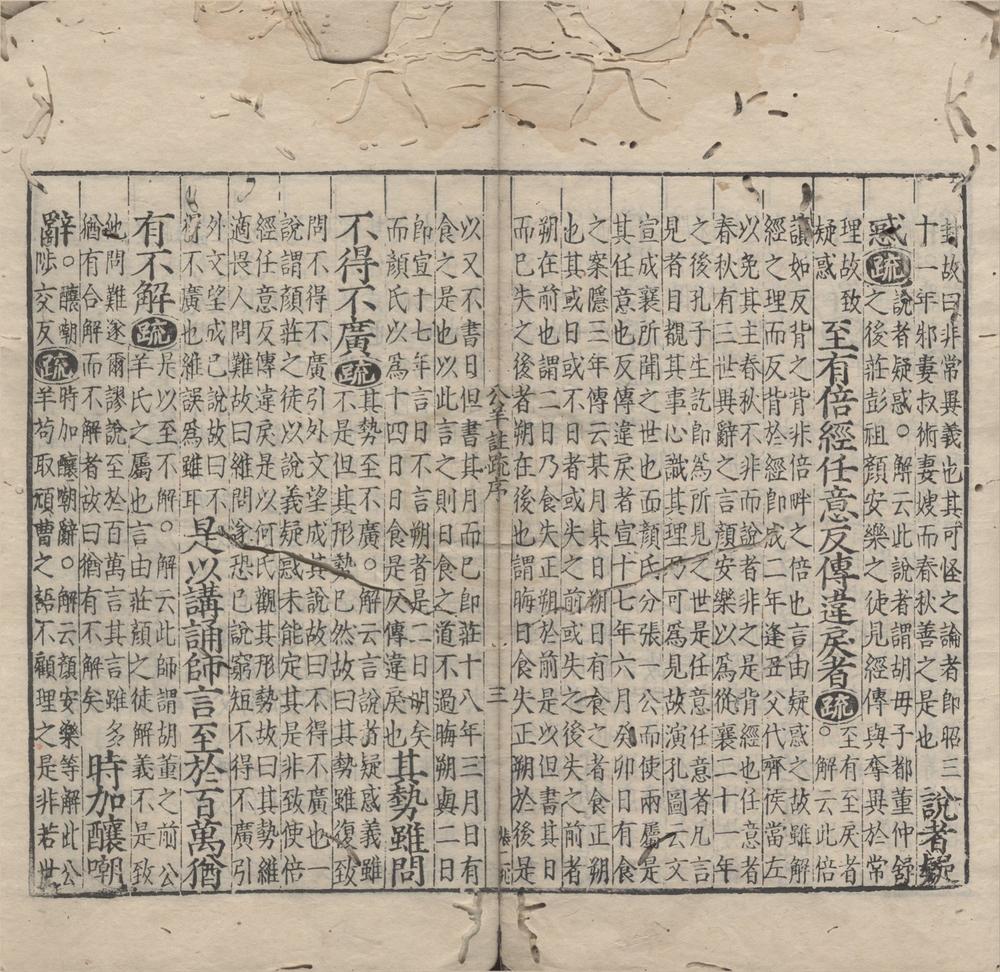 封故曰非常異義也其可怪之論者即昭三
十一年邾婁叔術妻嫂而春秋善之是也
說者疑
惑疏
說者疑惑。解云此說者謂胡毋子都董仲舒
之後莊彭祖顏安樂之徒見經傳與奪異於常
理故致
疑惑
至有倍經任意反傳違戾者疏
至有至戾者
。解云此倍
讀如反背之背非倍畔之倍也言由疑惑之故雖解
經之理而反背於經即成二年逢丑父代齊侯當左
以免其主春秋不非而說者非之是背經也任意者
春秋有三世異辭之言顏安樂以為從襄二十一年
之後孔子生訖即為所見之世是任意任意者凡言
見者目覩其事心識其理乃可為見故演孔圖云文
宣成襄所聞之世也而顏氏分張一公而使兩屬是
其任意也反傳違戾者宣十七年六月癸卯日有食
之案隱三年傳云某月某日朔日有食之者食正朔
也其或日或不日者或失之前或失之後失之前者
朔在前也謂二日乃食失正朔於前是以但書其日
而已失之後者朔在後也謂晦日食失正朔於後是
公羊註疏序
三
以又不書日但書其月而已即莊十八年三月日有
食之是也以此言之則日食之道不過晦朔與二日
即宣十七年言日不言朔者是二日明矣
而顏氏以爲十四日日食是反傳違戾也
其勢雖問
不得不廣疏
其勢至不廣。解云言說者疑惑義雖
不是但其形勢已然故曰其勢雖復致
問不得不廣引外文望成其說故曰不得不廣也一
說謂顏莊之徒以說義疑惑未能定其是非致使倍
經任意反傳違戾是以何氏觀其形勢故曰其勢維
適畏人問難故曰維問遂恐己說窮短不得不廣引
外文望成己說故曰不
得不廣也維誤爲雖耳
是以講誦師言至於百萬猶
有不解疏
是以至不解。解云此師謂胡董之前公
羊氏之屬也言由莊顏之徒解義不是致
他問難遂爾謬說至於百萬言其言雖多
猶有合解而不解者故曰猶有不解矣
時加釀嘲
辭
。釀嘲
陟交友
疏
時加釀嘲辭。解云顏安樂等解此公
羊苟取頑曹之語不顧理之是非若世